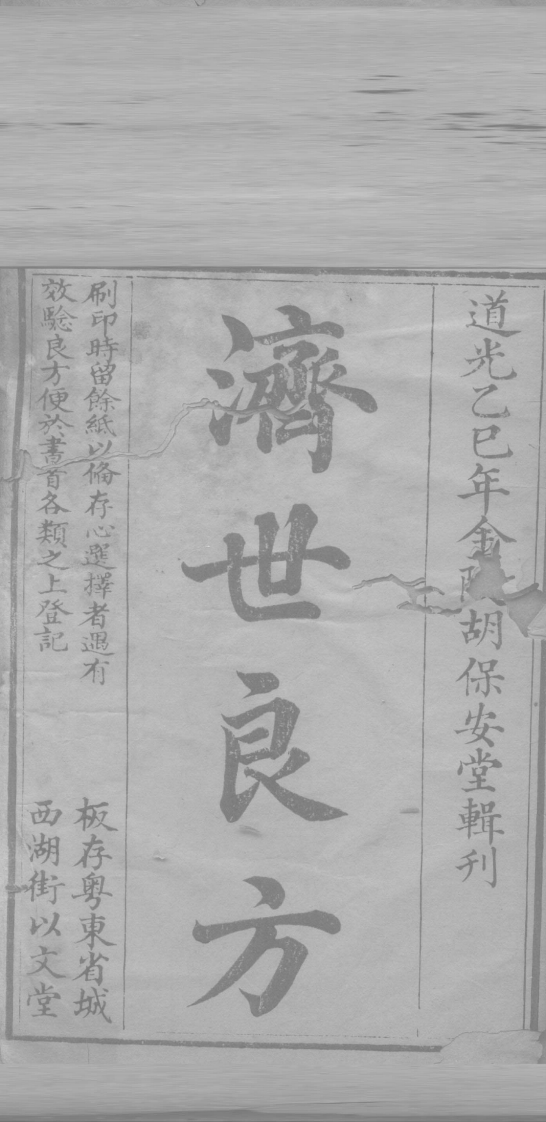 道光乙巳年金陵胡保安堂輯刊
濟世良方
刷印時留餘紙以備存心選擇者遇有
效驗良方便於書首各類之上登記
板存粵東省城
西湖街以文堂